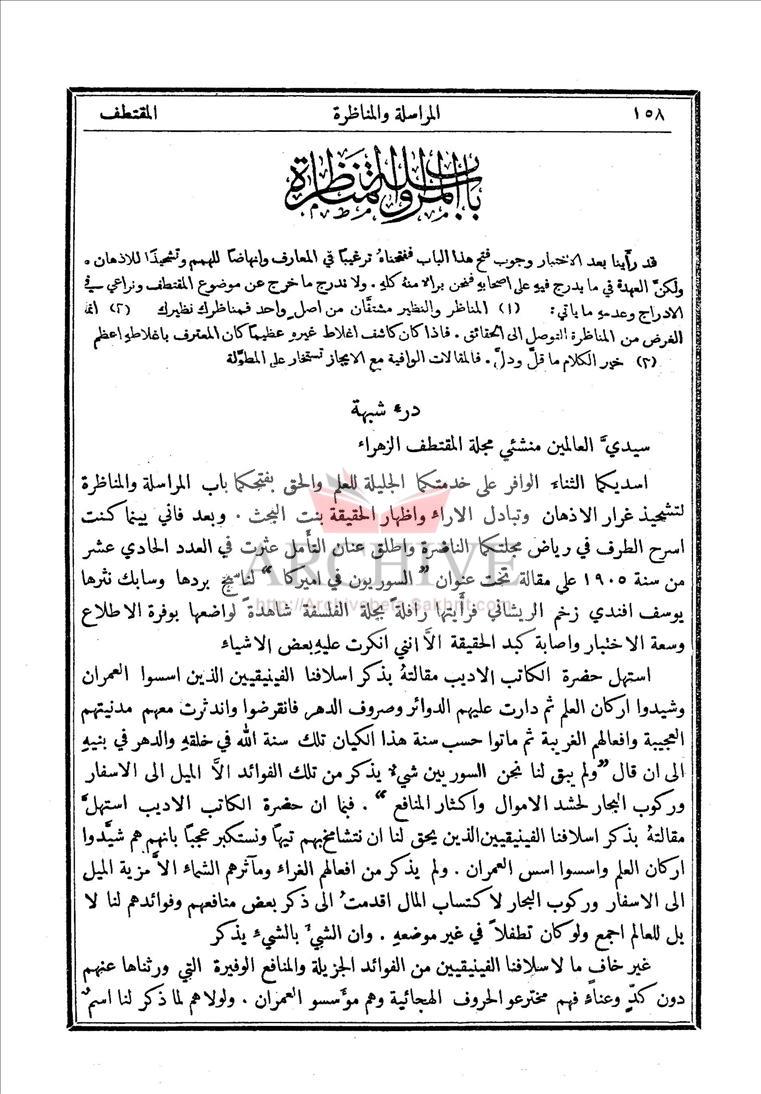 ١٥٨ المراسلة والمناظرة المقتطف
باب المراسلة والمناظرة
قد رأينا بعد الاختبار وجوب فتح هذا الباب ففتحناهُ ترغيبًا في المعارف وإنهاضًا للهمم وتشحيذًا للاذهان .
ولكنَّ العهدة في ما يدرج فيهِ على اصحابهِ فنحن براء منهُ كلهِ . ولا ندرج ما خرج عن موضوع المقتطف ونراعي في
الادراج وعدمهِ ما ياتي : (١) المناظر والنظير مشتقَّان من اصل واحد فمناظرك نظيرك (٢) انما
الغرض من المناظرة التوصل الى الحقائق . فاذا كان كاشف اغلاط غيرهِ عظيمًا كان المعترف باغلاطهِ اعظم
(٣) خير الكلام ما قلَّ ودلَّ . فالمقالات الوافية مع الايجاز تستخار على المطوَّلة
درء شبهة
سيديَّ العالمين منشئي مجلة المقتطف الزهراء
اسديكما الثناء الوافر على خدمتكما الجليلة للعلم والحق بفتحكما باب المراسلة والمناظرة
لتشحيذ غرار الاذهان وتبادل الاراء واظهار الحقيقة بنت البحث . وبعد فاني بينما كنت
اسرح الطرف في رياض مجلتكما الناضرة واطلق عنان التأمل عثرت في العدد الحادي عشر
من سنة ١٩٠٥ على مقالة تحت عنوان " السوريون في اميركا " لناسج بردها وسابك نثرها
يوسف افندي زخم الريشاني فرأيتها رافلةً بحلة الفلسفة شاهدةً لواضعها بوفرة الاطلاع
وسعة الاختبار واصابة كبد الحقيقة الَّا انني انكرت عليهِ بعض الاشياء
استهل حضرة الكاتب الاديب مقالتهُ بذكر اسلافنا الفينيقيين الذين اسسوا العمران
وشيدوا اركان العلم ثم دارت عليهم الدوائر وصروف الدهر فانقرضوا واندثرت معهم مدنيتهم
العجيبة وافعالهم الغريبة ثم ماتوا حسب سنة هذا الكيان تلك سنة الله في خلقهِ والدهر في بنيهِ
الى ان قال "ولم يبق لنا نحن السوريين شيءٌ يذكر من تلك الفوائد الَّا الميل الى الاسفار
وركوب البحار لحشد الاموال واكثار المنافع " . فبما ان حضرة الكاتب الاديب استهلَّ
مقالتهُ بذكر اسلافنا الفينيقيين الذين يحق لنا ان نتشامخ بهم تيهًا ونستكبر عجبًا بانهم هم شيَّدوا
اركان العلم واسسوا اسس العمران . ولم يذكر من افعالهم الغراء ومآثرهم الشماء الَّا مزية الميل
الى الاسفار وركوب البحار لاكتساب المال اقدمتُ الى ذكر بعض منافعهم وفوائدهم لنا لا
بل للعالم اجمع ولو كان تطفلاً في غير موضعهِ . وان الشيءُ بالشيءِ يذكر
غير خافٍ ما لاسلافنا الفينيقيين من الفوائد الجزيلة والمنافع الوفيرة التي ورثناها عنهم
دون كدٍّ وعناءٍ فهم مخترعو الحروف الهجائية وهم مؤسسو العمران . ولولاهم لما ذكر لنا اسمٌ
ARCHIVE